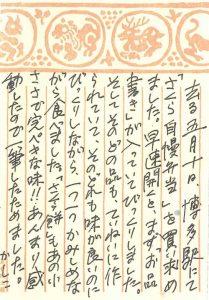 去る五月十日、博多駅にて
「さくら自慢弁当」を買い求め
ました。早速開くと、まず、"お品
書き"が入っていてびっくりしました。
そしてそのどの品もていねいに作
られていて、そのどれも味の良いのに
びっくりしながら、一つ一つかみしめな
がら食べました。さくら餅もあの小
ささで完ぺきな味!!あんまり感
動したので一筆したためました。
かしこ